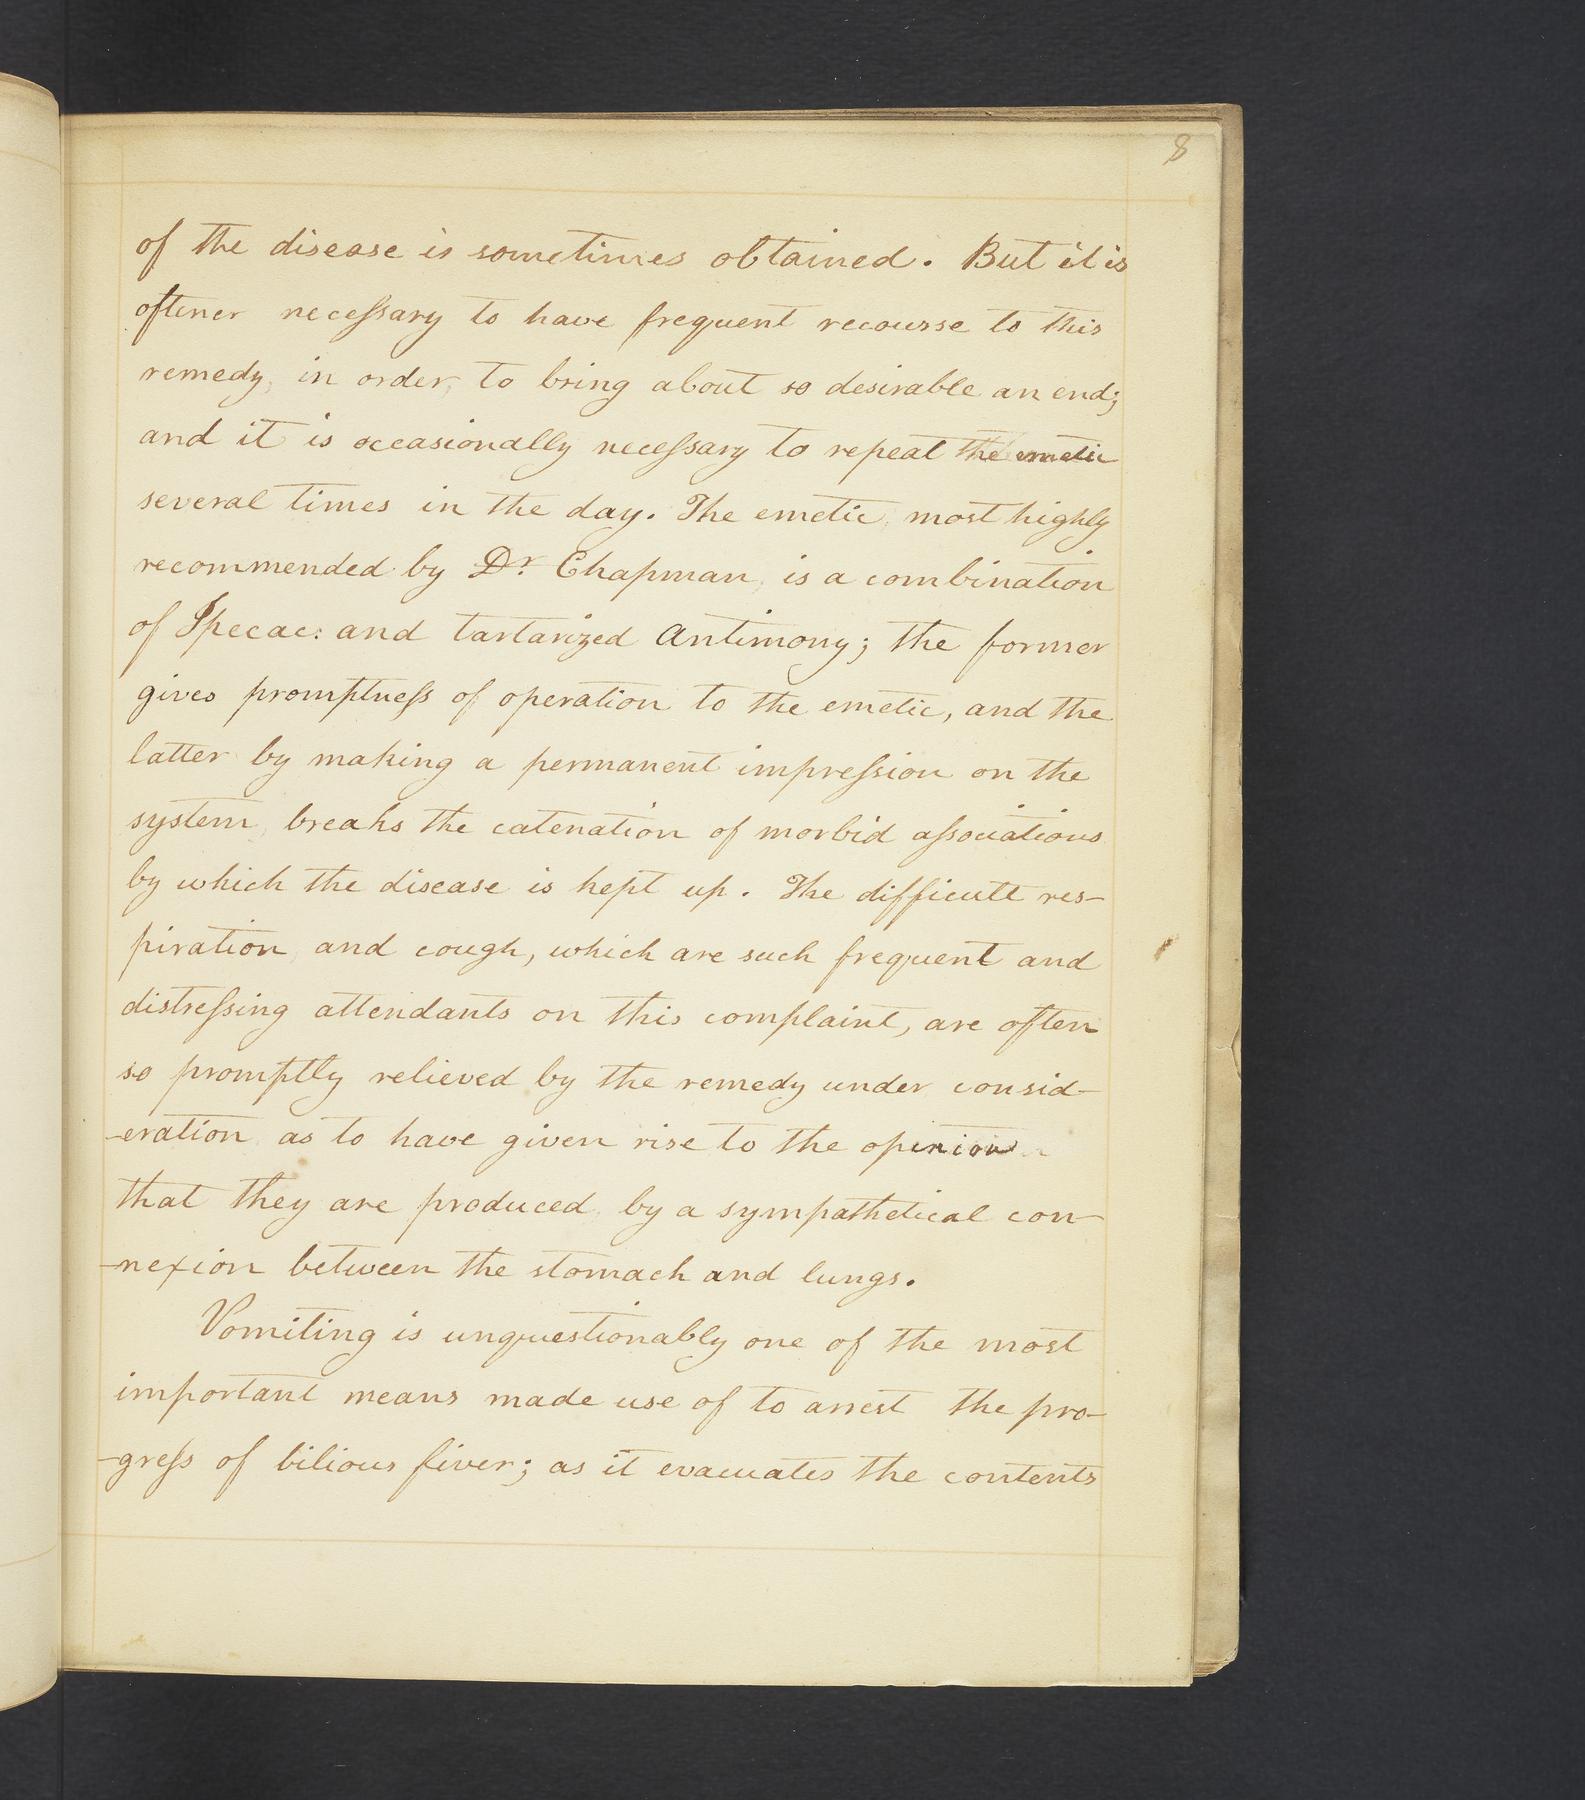 8
of the disease is sometimes obtained. But it is
oftener necessary to have frequent recourse to this
remedy, in order, to bring about so desirable an end;
and it is occasionally necessary to repeat the emetic
several times in the day. The emetic, most highly
recommended by Dr. Chapman, is a combination
of Ipecac: and tartarized Antimony; the former
gives promptness of operation to the emetic, and the
latter by making a permanent impression on the
system, breaks the catenation of morbid associations
by which the disease is kept up. The difficult res-
piration, and cough, which are such frequent and
distressing attendants on this complaint, are often
so promptly relieved by the remedy under consid-
-eration, as to have given rise to the opinion
that they are produced, by a sympathetical con-
-nexion between the stomach and lungs.
Vomiting is unquestionably one of the most
important means made use of to arrest the pro-
-gress of bilious fiver; as it evacuates the contents